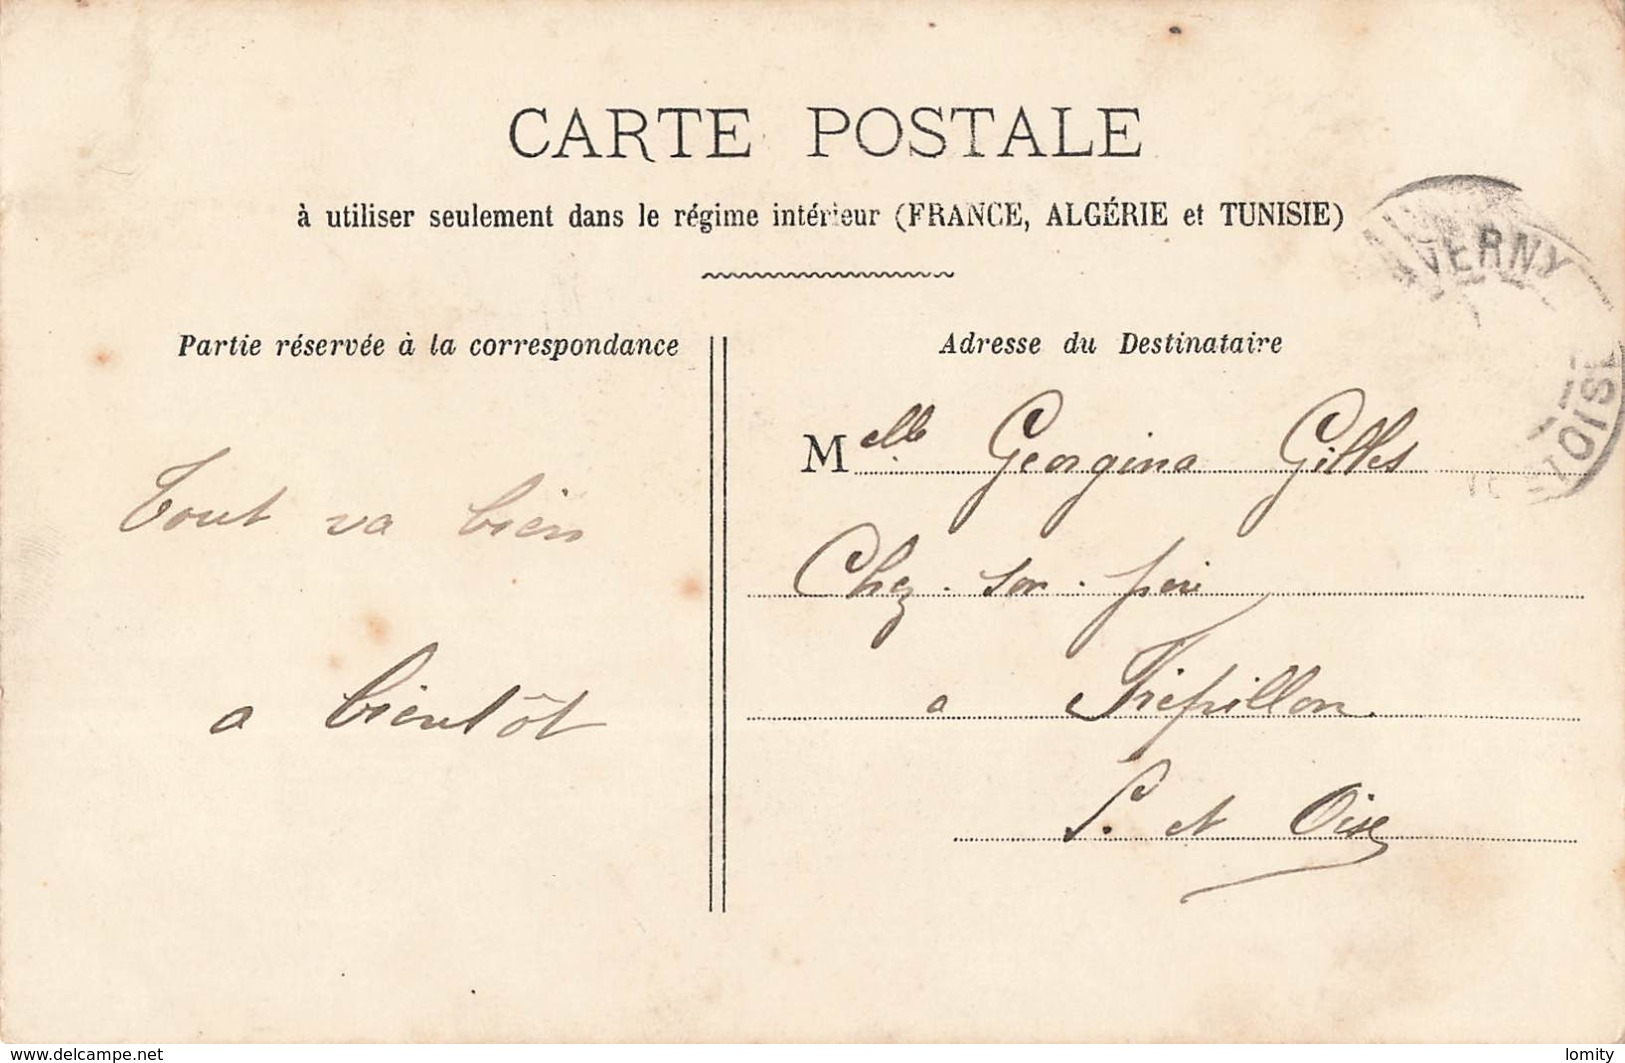 CARTE POSTALE
à utiliser seulement dans le régime intérieur (FRANCE, ALGÉRIE et TUNISIE)
VERNY
OISE
Partie réservée à la correspondance
Tout va bien
a bientôt
Adresse du Destinataire
Melle Georgina Gilles
Chez son père
a Frépillon
S. et Oise
www.delcampe.net
lomity